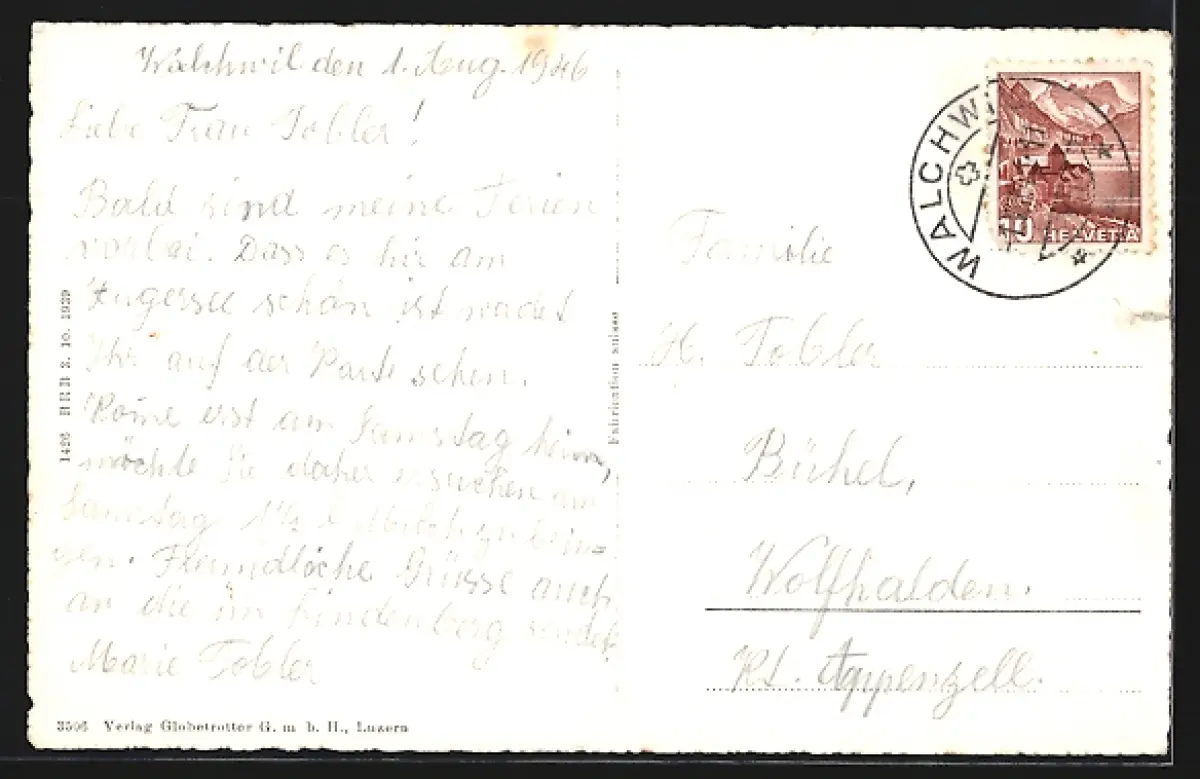 Walchwil den 1. Aug. 1946
Liebe Frau Tobler!
Bald sind meine Ferien
vorbei. Dass es hir am
Zugersee schön ist werdet
Ihr auf der Karte sehen.
Komme erst am Samstag heim,
möchte Sie daher ersuchen am
Samstag 1½ l Milch zu bring
en. Freundliche Grüsse auch
an die im Lindenberg sendet
Marie Tobler
1422 HHH 3. 10. 1939
3506 Verlag Globetrotter G. m. b. H., Luzern
Fabrication suisse
WALCHWIL
10 HELVETIA
Familie
H. Tobler
Bühel,
Wolfhalden.
Kt. Appenzell.